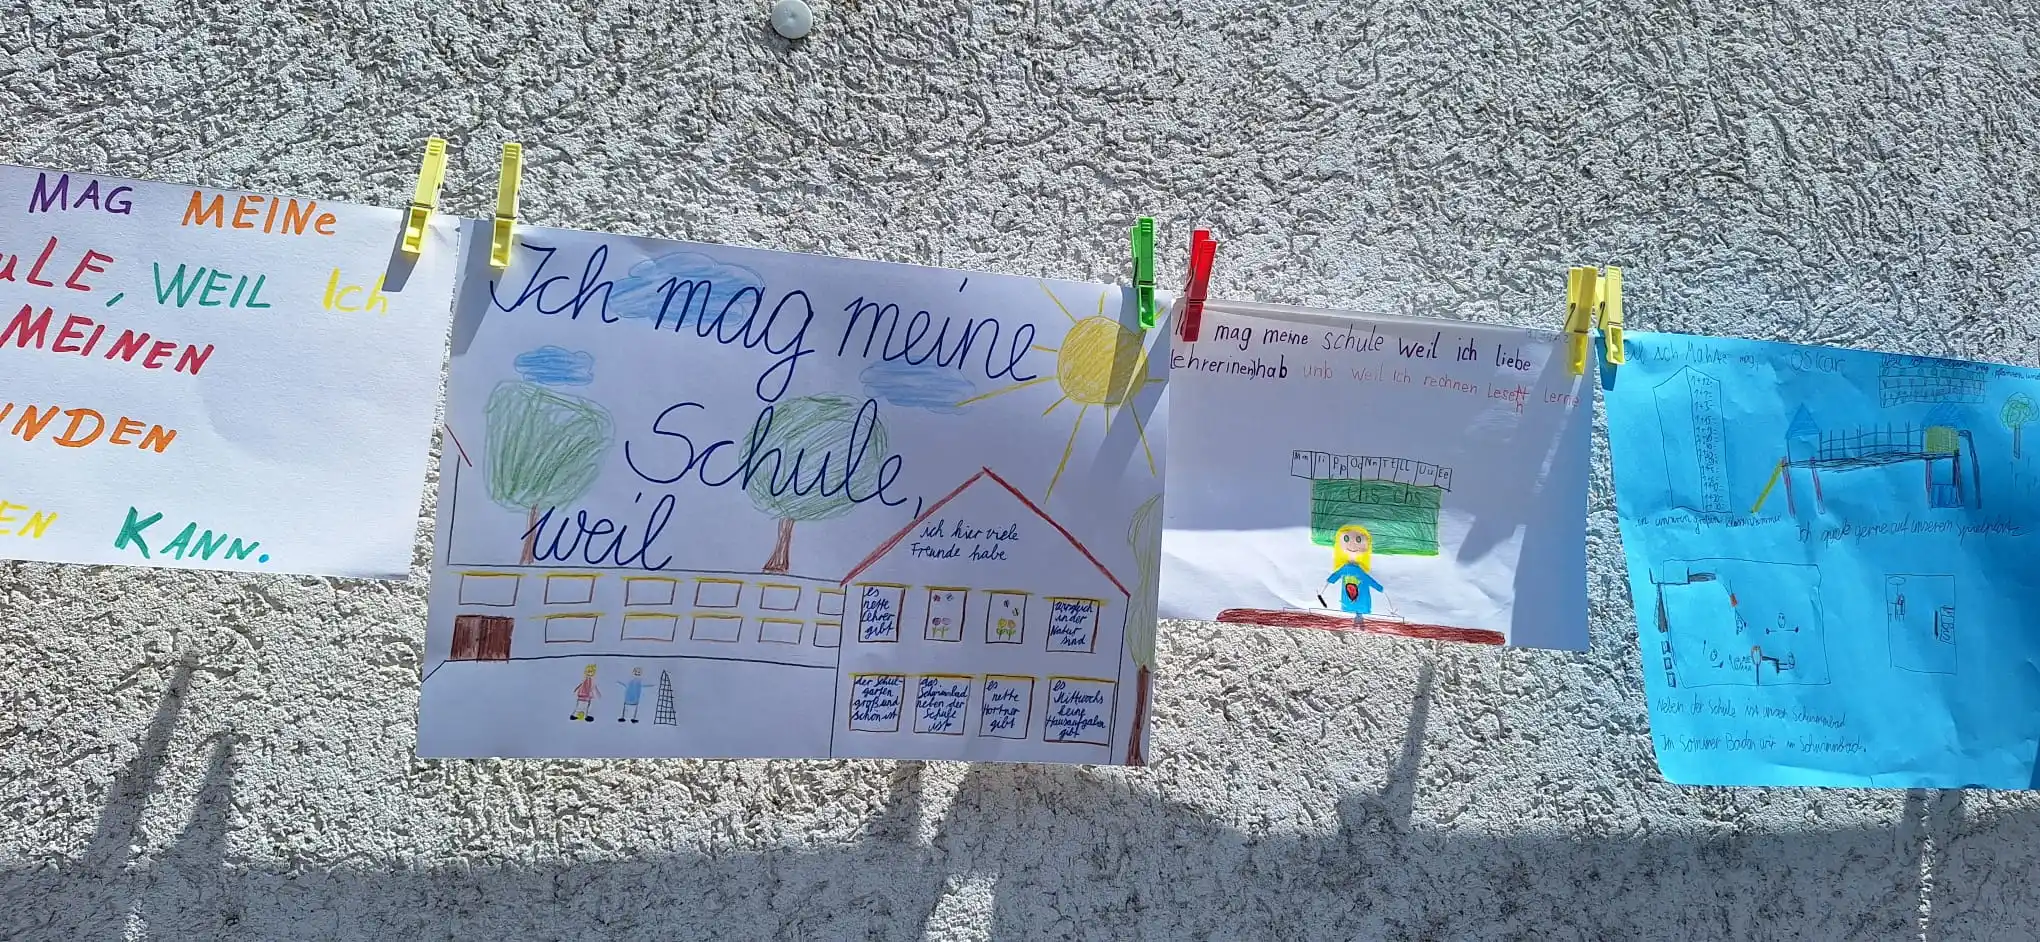 MAG MEINe
uLE, WEIL Ich
MEINEN
NDEN
EN KANN.
Ich mag meine
Schule,
weil
ich hier viele
Freunde habe
es
nette
Lehrer
gibt
in der
Natur
sind
der Schul-
garten
groß und
schön ist
das
Schwimmbad
neben der
Schule
ist
es
nette
Hortner
gibt
es
Mittwochs
keine
Hausaufgaben
gibt
mag meine schule weil ich liebe
lehrerinen hab unb weil ich rechnen lesen lerne
Mm Ii Pp Oo Nn Tt Ll Uu Ee
chs chs
mag. OSkar
in unseren großen
Ich spiele gerne auf unserem
Neben der Schule ist unser Schwimmbad
Im Sommer Baden wir im Schwimmbad.